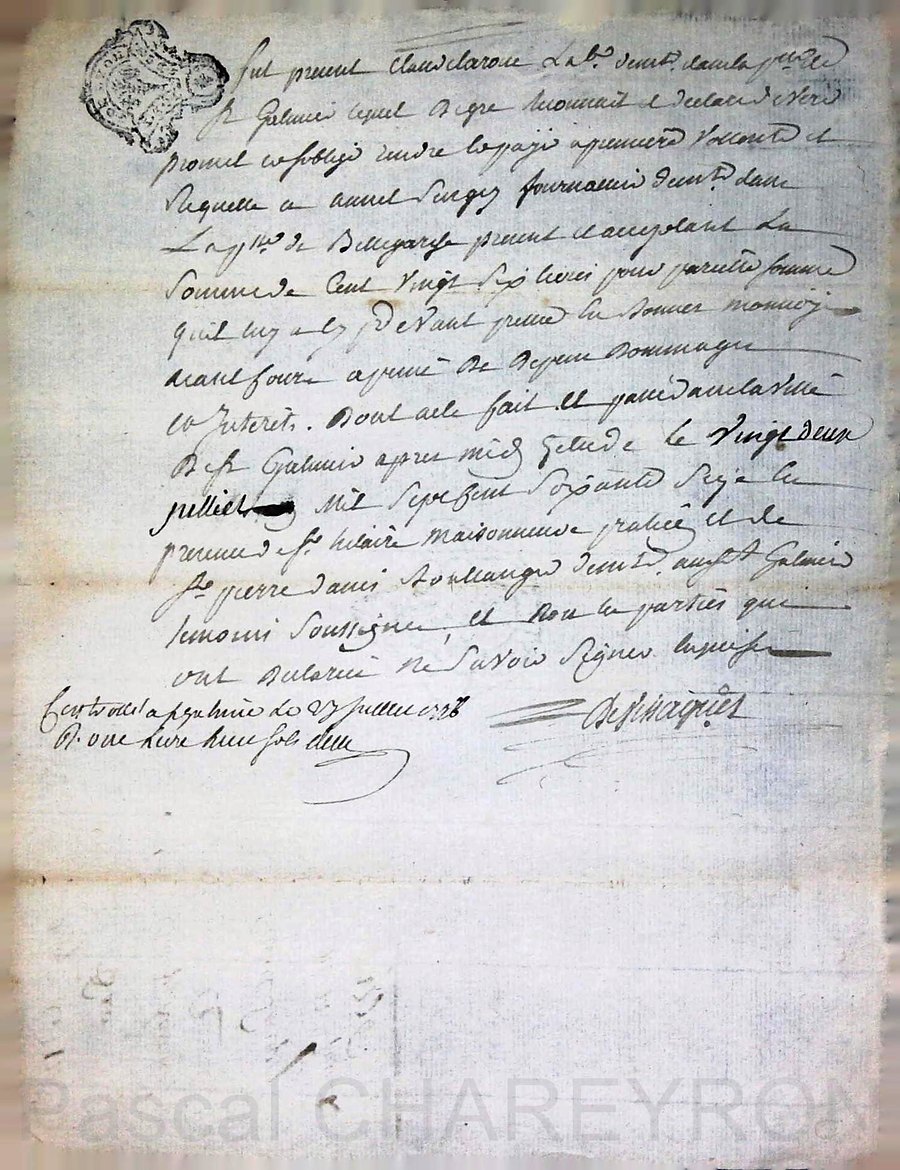 fut present Claude larose Lab.r demt. dans la p.sse de
St Galmier lequel De gre reconnait et declare devoir
promet et soblige rendre et payé a premiere Vollonté et
Requette a annet fournamie demt. dans
La p.sse de Bellegarde present et acceptant La
Somme de Cent Vingt Six livres pour pareille somme
quil luy a cy devant preté en bonnes monnoy
ayant cours a peine De Depens Dommages
et Interets. Dont acte fait et passé dans la Ville
De St Galmier apres midy le vingt deux
juillet Mil Sept Cent Soixante Seize en
presence de Sr. hilaire Maisonneuve praticien et de
Sr. pierre Boullanger demt. aud. St Galmier
temoins Soussignes, et Non les parties qui
ont Declarré Ne Savoir Signer
Controllé a St galmier Le 23 Juillet 1776
R. une livre huit sols
Pascal CHAREYRON